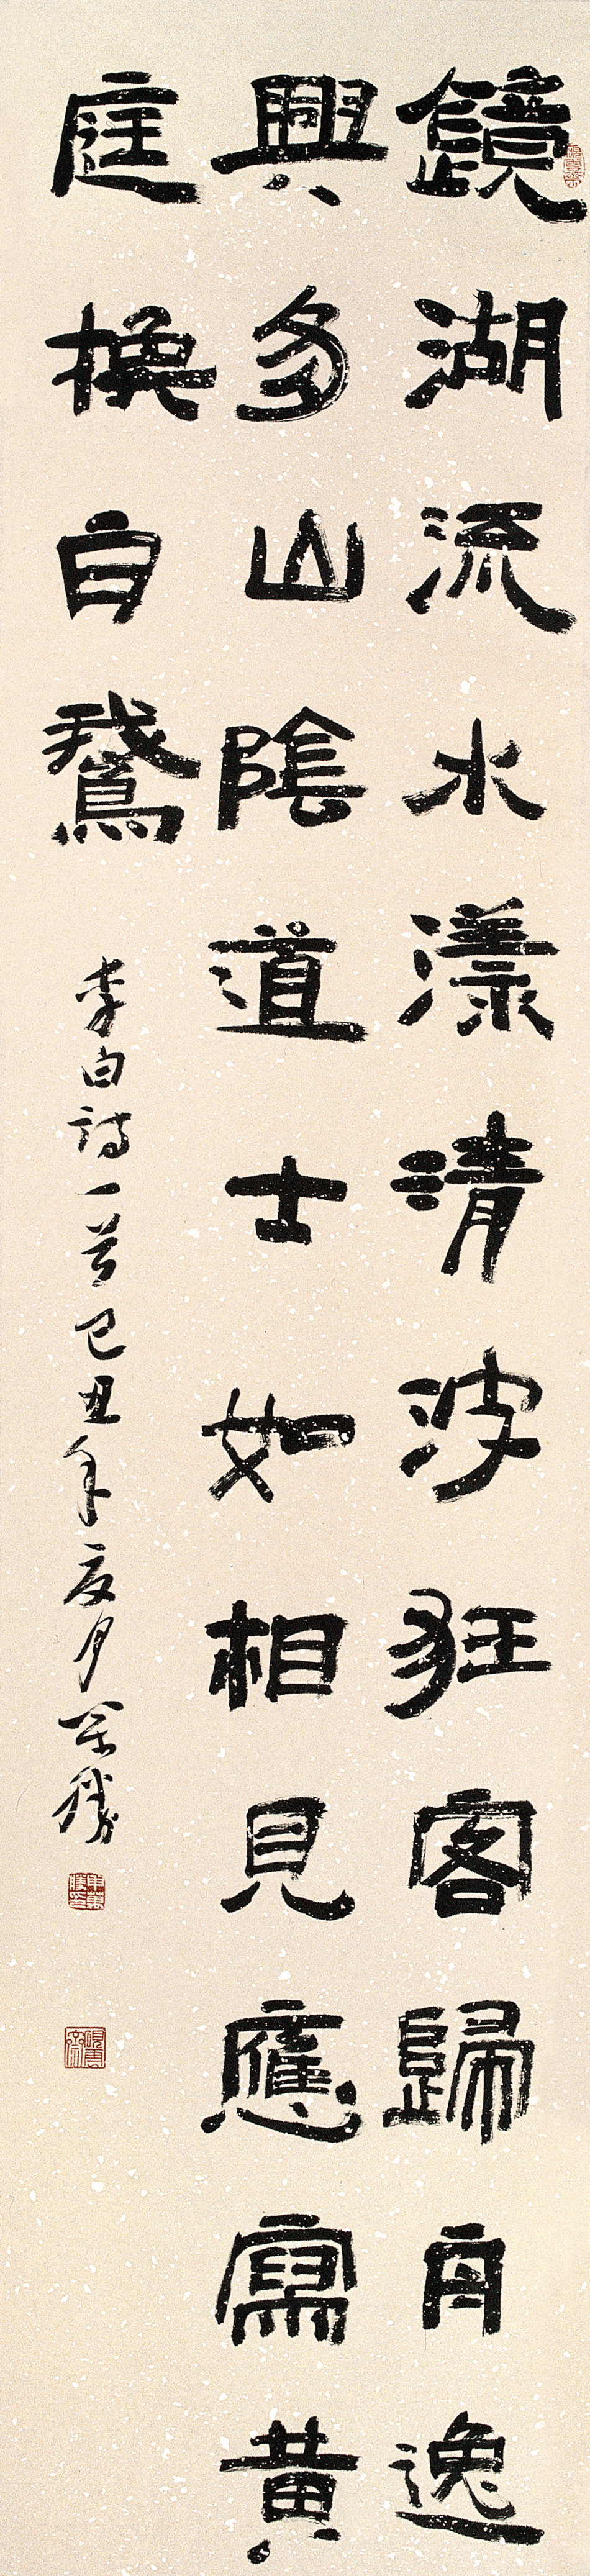 鏡湖流水漾清波狂客歸舟逸
興多山陰道士如相見應寫黄
庭換白鵞
李白詩一首己丑年夏月萬勝